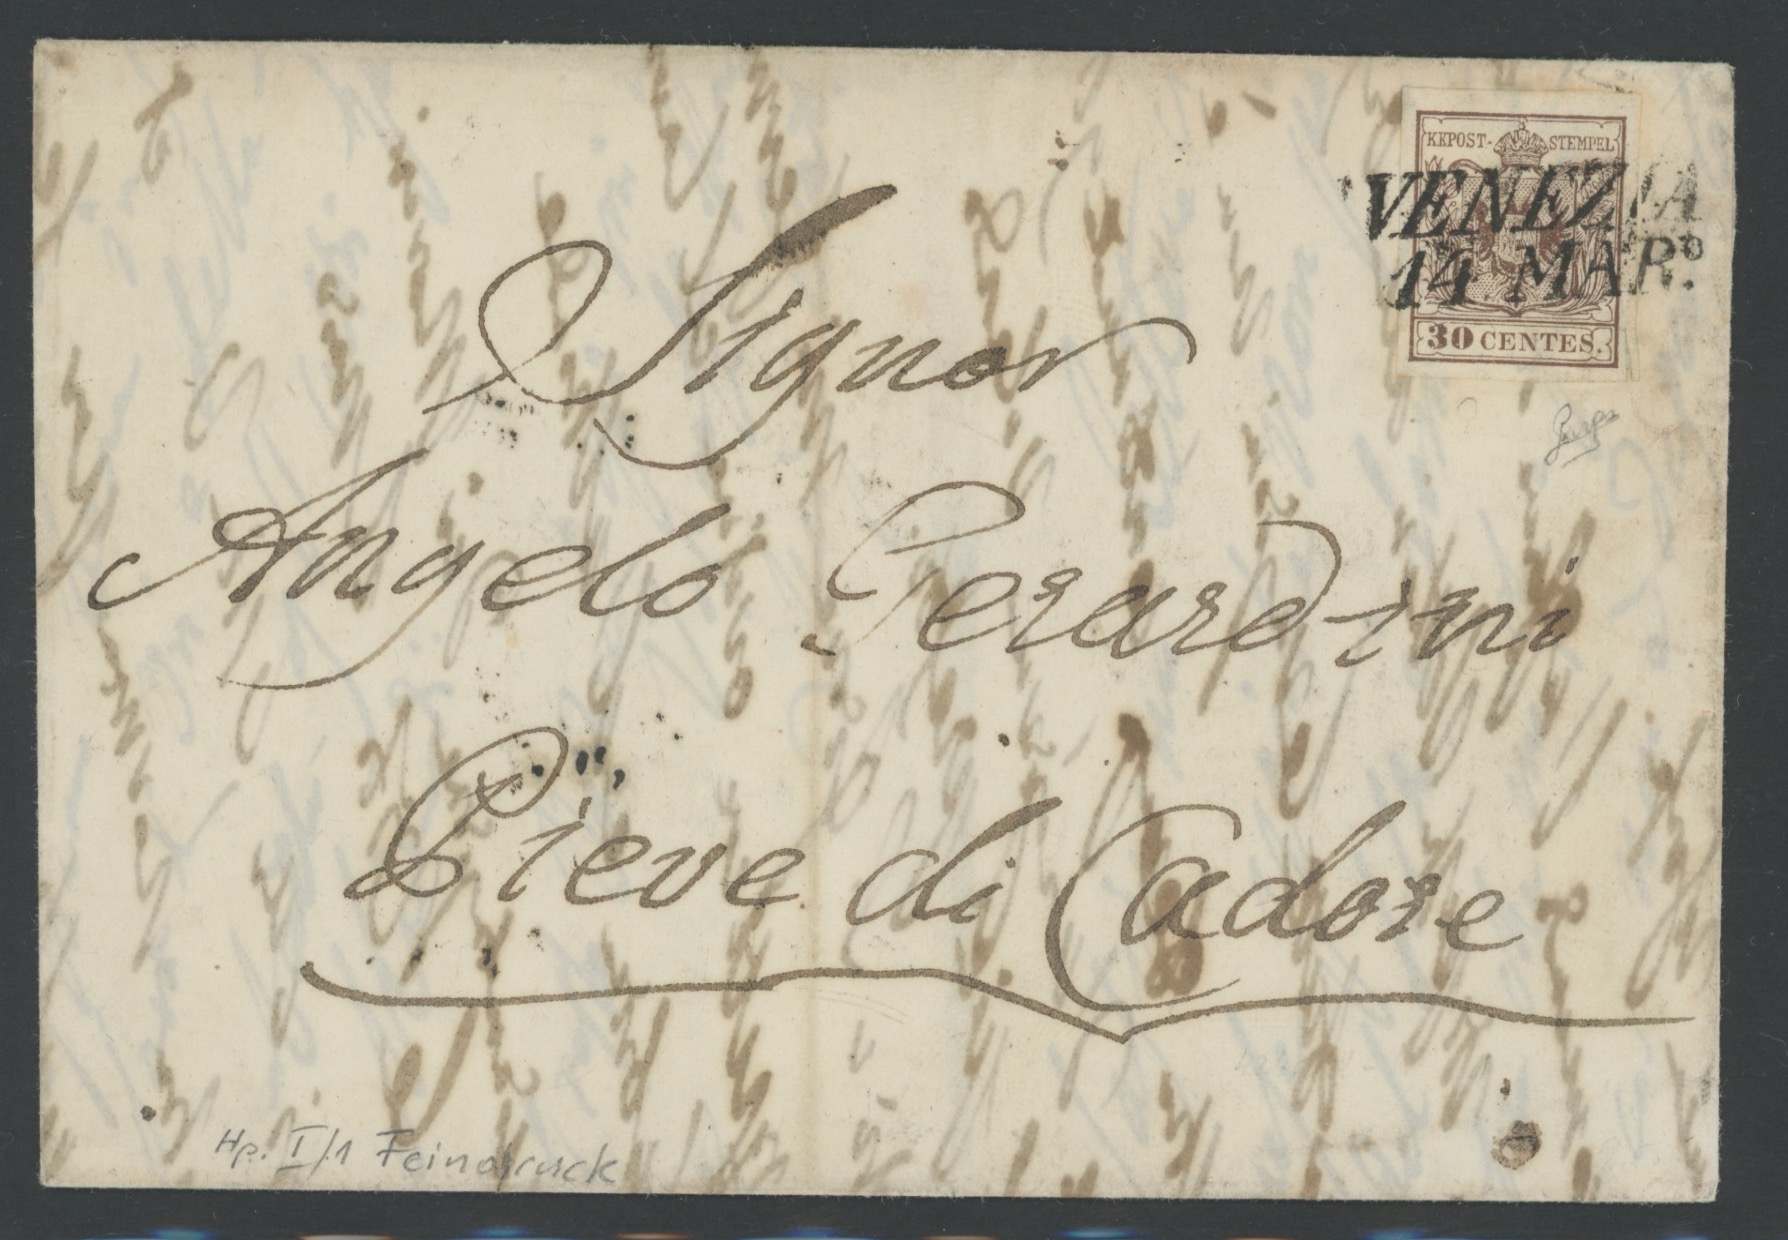 KKPOST-STEMPEL
VENEZIA
14. MARº.
30 CENTES.
Signor
Angelo Gerardini
Pieve di Cadore
Hp. I/1 Feindruck